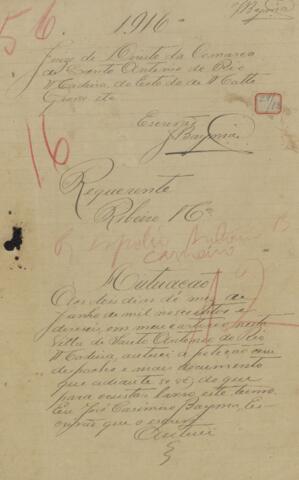 Bayma
56. 1916
Juizo de Direito da Comarca
de Santo Antonio do Rio
Madeira, do Estado de Matto
Grosso etc
Escrivão
JBayma
16
Requerente
Ribeiro & Cª
Autuação
Aos dois dias do mez de
Junho de mil novecentos e
deseseis, em meu cartorio nesta
Villa de Santo Antonio do Rio
Madeira, autuei a petição com
despacho e mais documento
que adiante se vê; do que
para constar lavro este termo.
Eu José Casimiro Bayma, Es-
crivão que o escrevi
Autuei